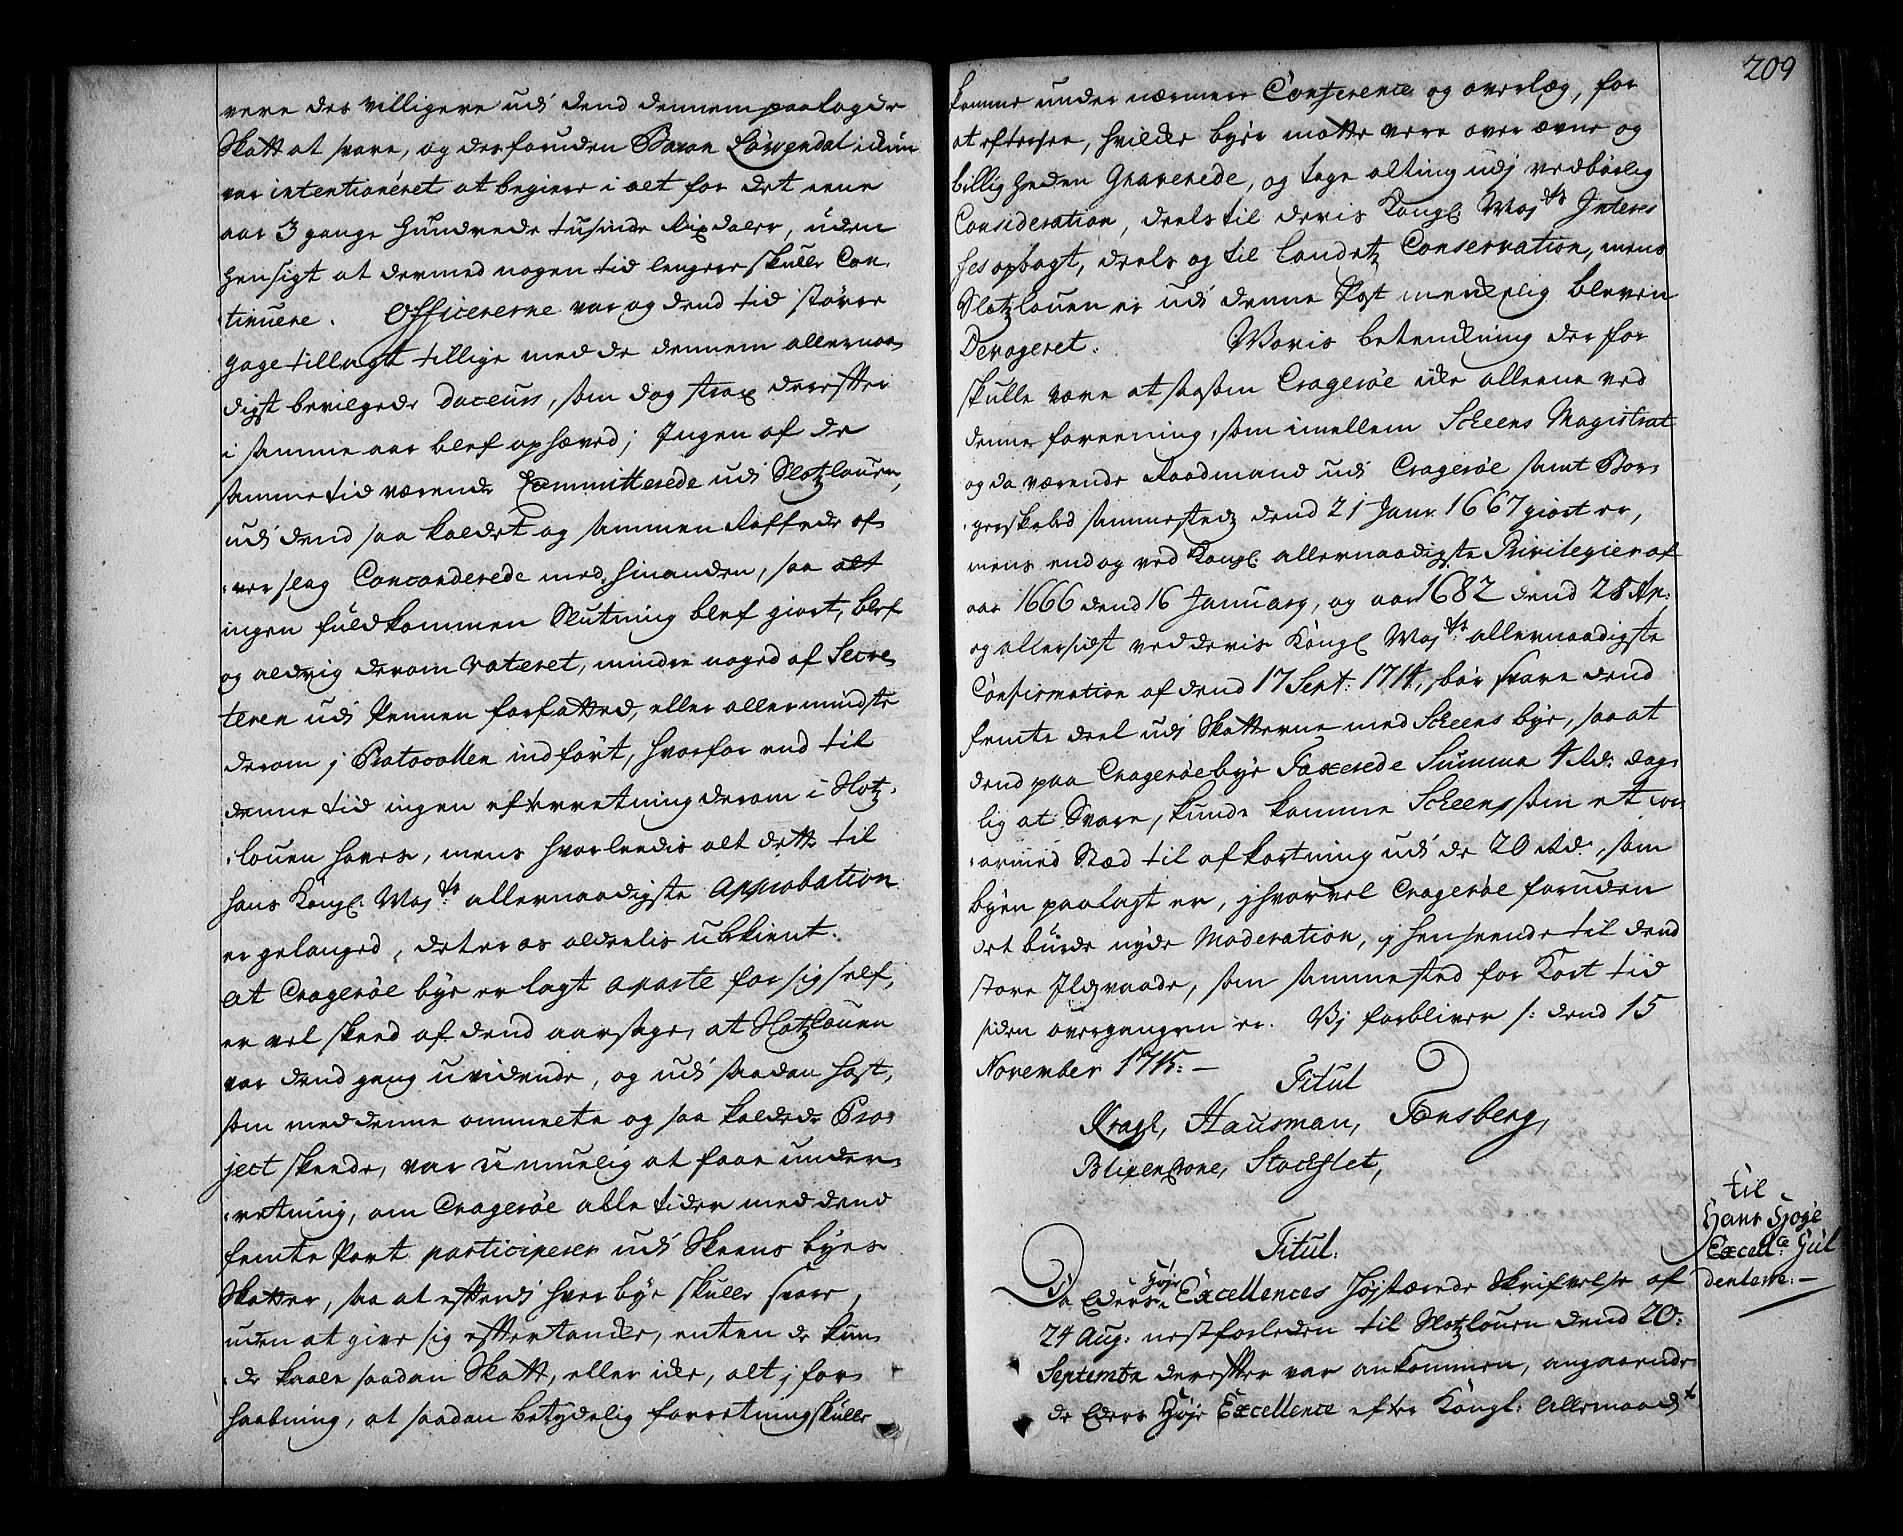 være des villigere udi dend dennem paalagde
Skatt at svare, og desforuden Baron Løwendal iden
var intentioneret at begiere i alt for det eene
aar 3 gange hundrede tusinde Rixdaler, uden
hensigt at dermed nogen tid lengere skulle Con-
tinuere. Officererne var og dend tid større
gage tillagt tillige med de dennem allernaa-
digst bevilgede Douceurs, som dog strax derefter
i samme aar blef ophæved; Ingen af de
samme tid værende Committerede udi Slotzlouen,
udi dend saa kaldet og sammen Raffede of-
verslag Concorderede med hinanden, saa alt
ingen fuldkommen Slutning blef giort, blef
og aldrig derom voteret, mindre noged af Secre-
teren udi Pennen forfatted, eller allermindste
derom j Protocollen indført, hvorfor end til
denne tid ingen efterretning derom i Slotz-
louen haves, mens hvorleedis alt dette til
hans Kongl. Mayts allernaadigste Approbation
er gelanged, det er os aldeelis ubekient.
At Cragerøe bye er lagt aparte for sig self,
er vel skeed af dend aarsage, at Slotzlouen
var dend gang uvidende, og udi saadan hast,
som med denne ommelte og saa kaldede Pro-
ject skeede, var umuelig at faae under-
retning, om Cragerøe alle tider med dend
femte Part participerer udi Skeens byes
Skatter, saa at efterdi hver bye skulle svare,
uden at give sig eftertanke, enten de kun-
de taale saadan Skatt, eller icke, alt j for-
haabning, at saadan betydelig forretning skulle
209
komme under nærmere Conference og overlæg, for
at eftersee, hvilcke byer motte være over ævne og
billigheden Graverede, og tage alting udj vedbørlig
Consideration, deels til deris Kongl. Mayts Interes-
ses opbagt, deels og til Landetz Conservation, mens
Slotzlouen er udi denne Post merckelig bleven
Derogeret. Voris betenckning derfor
skulle være at saasom Cragerøe icke alleene ved
denne foreening, som imellem Scheens Magistrat
og da værende Raadmand udi Cragerøe samt Bor-
gerskabed sammestedz dend 21 Janr. 1667 giort er,
mens endog ved Kongl. allernaadigste Privilegier af
aar 1666 dend 16 January, og aar 1682 dend 28 Ap:
og allersidst ved deris Kongl. Mayts allernaadigste
Confirmation af dend 17 Sept: 1714, bør svare dend
femte deel udi Skatterne med Scheens bye, saa at
dend paa Cragerøe bye Taxerede Summa 4 Rd: dag-
lig at Svare, kunde komme Scheen, som et
armed Stæd til afkortning udi de 20 Rd:, som
byen paalagt er, jhvorvel Cragerøe foruden
det burde nyde Moderation, j henseende til dend
store Ildzvaade, som sammested for Kort tid
siden overgangen er. Vj forbliver p: dend 15
November 1715. —
Titul
Kragh, Hausman, Tønsberg,
Blixencrone, Stockflet,
til
Hans Høye
Excell:ce Gül-
denlewe. —
Titul.
Da Eders Høye Excellences Højstærede Skrifvelse af
24 Aug: nestforleden til Slotzlouen dend 20:
Septembr derefter var ankommen, angaaende
de Eders Høye Excellence efter Kongl. Allernaadt